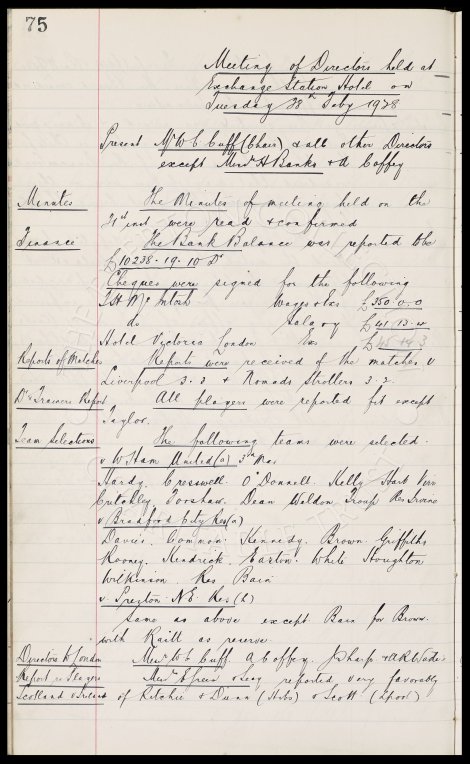 75
Meeting of Directors held at
Exchange Station Hotel on
Tuesday 28th Feby 1928
Present Mr W C Cuff (Chair) & all other Directors
except Messrs H Banks & A Coffey
Minutes The Minutes of meeting held on the
21st inst were read & confirmed
Finance The Bank Balance was reported to be
£10238. 19. 10 Dr
Cheques were signed for the following
T H McIntosh Wages & Exs £350. 0. 0
do Salary
Hotel Victoria London Exs
Reports of Matches Reports were received of the matches v
Liverpool 3. 3 & Nomads Strollers 3. 2.
Dr & Trainers Report All players were reported fit except
Taylor.
Team Selections The following teams were selected.
v W Ham United (a) 3rd Mar
Hardy. Cresswell. O'Donnell. Kelly Hart Virr
Critchley Forshaw. Dean Weldon. Troup Res Irvine
v Bradford City Res (a)
Davies. Common. Kennedy. Brown. Griffiths
Rooney. Kendrick. Easton. White Houghton
Wilkinson. Res Bain
v. Preston N.E. Res (h)
Same as above except Bain for Brown.
with Raitt as reserve
Directors to London Messrs W C Cuff. A Coffey. J Sharp & A R Wade.
Report re Players Messrs Green & Secy reported very favorably
Scotland & Ireland of Ritchie & Dunn (Hibs) & Scott (Lpool)